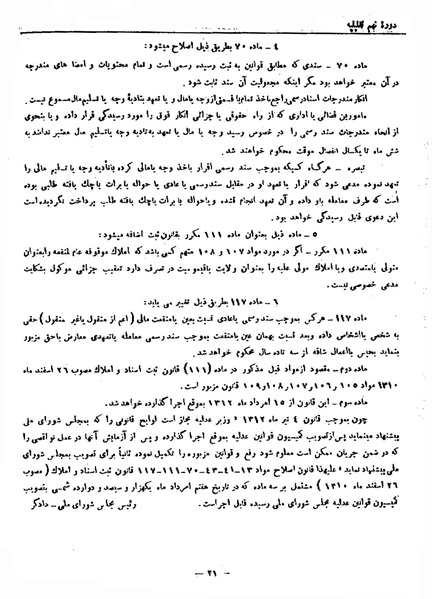 دورهٔ نهم تقنینیه
٤ – ماده ٧٠ بطریق ذیل اصلاح میشود:
ماده ٧٠ – سندی که مطابق قوانین به ثبت رسیده رسمی است و تمام محتویات و امضا های مندرجه
در آن معتبر خواهد بود مگر اینکه مجعولیت آن سند ثابت شود.
انکار مندرجات اسناد رسمی راجع باخذ تمام یا قسمتی از وجه یا مال و یا تعهد بتادیهٔ وجه یا تسلیم مال مسموع نیست.
مامورین قضائی یا اداری که از راه حقوقی یا جزائی انکار فوق را مورد رسیدگی قرار داده و یا بنحوی
از انحاء مندرجات سند رسمی را در خصوص رسید وجه یا مال یا تعهد به تادیه وجه یا تسلیم مال معتبر ندانند به
شش ماه تا یکسال انفصال موقت محکوم خواهند شد.
تبصره – هرگاه کسیکه بموجب سند رسمی اقرار باخذ وجه یا مالی کرده یا تأدیه وجه یا تسلیم مالی را
تعهد نموده مدعی شود که اقرار یا تعهد او در مقابل سند رسمی یا عادی یا حواله یا برات یا چك یا فته طلبی بوده
است که طرف معامله باو داده و آن تعهد انجام نشده و یا حواله یا برات یا چك یا فته طلب پرداخت نگردیده است
این دعوی قابل رسیدگی خواهد بود.
٥ – ماده ذیل بعنوان ماده ١١١ مکرر بقانون ثبت اضافه میشود:
ماده ١١١ مکرر – اگر در مورد مواد ١٠٧ و ١٠٨ متهم کسی باشد که املاك موقوفه عام المنفعه را بعنوان
متولی یا متصدی و یا املاك مولی علیه را بعنوان ولایت یا قیمومیت در تصرف دارد تعقیب جزائی موکول بشکایت
مدعی خصوصی نیست.
٦ – ماده ١١٧ بطریق ذیل تغییر می یابد:
ماده ١١٧ – هر کس بموجب سند رسمی یا عادی نسبت بعین یا منفعت مالی (اعم از منقول یا غیر منقول) حقی
به شخص یا اشخاص داده و بعد نسبت بهمان عین یا منفعت بموجب سند رسمی معامله یا تعهدی معارض با حق مزبور
بنماید بحبس با اعمال شاقه از سه تا ده سال محکوم خواهد شد.
ماده دوم – مقصود از مواد قبل مذکور در ماده (١١١) قانون ثبت اسناد و املاك مصوب ٢٦ اسفند ماه
١٣١٠ مواد ١٠٥ و ١٠٦ و ١٠٧ و ١٠٨ و ١٠٩ قانون مزبور است.
ماده سوم – این قانون از ١٥ امرداد ماه ١٣١٢ بموقع اجرا گذارده خواهد شد.
چون بموجب قانون ٤ تیر ماه ١٣١٢ «وزیر عدلیه مجاز است لوایح قانونی را که بمجلس شورای ملی
پیشنهاد مینماید پس از تصویب کمیسیون قوانین عدلیه بموقع اجرا گذارده و پس از آزمایش آنها در عمل نواقصی را
که در ضمن جریان ممکن است معلوم شود رفع و قوانین مزبوره را تکمیل نموده ثانیاً برای تصویب بمجلس شورای
ملی پیشنهاد نماید» علیهذا قانون اصلاح مواد ١٣-٤١-٤٣-٧٠-١١١-١١٧ قانون ثبت اسناد و املاك (مصوب
٢٦ اسفند ماه ١٣١٠) مشتمل بر سه ماده که در تاریخ هفتم امرداد ماه یکهزار و سیصد و دوازده شمسی بتصویب
کمیسیون قوانین عدلیه مجلس شورای ملی رسیده قابل اجراست.
رئیس مجلس شورای ملی – دادگر
– ٢١ –